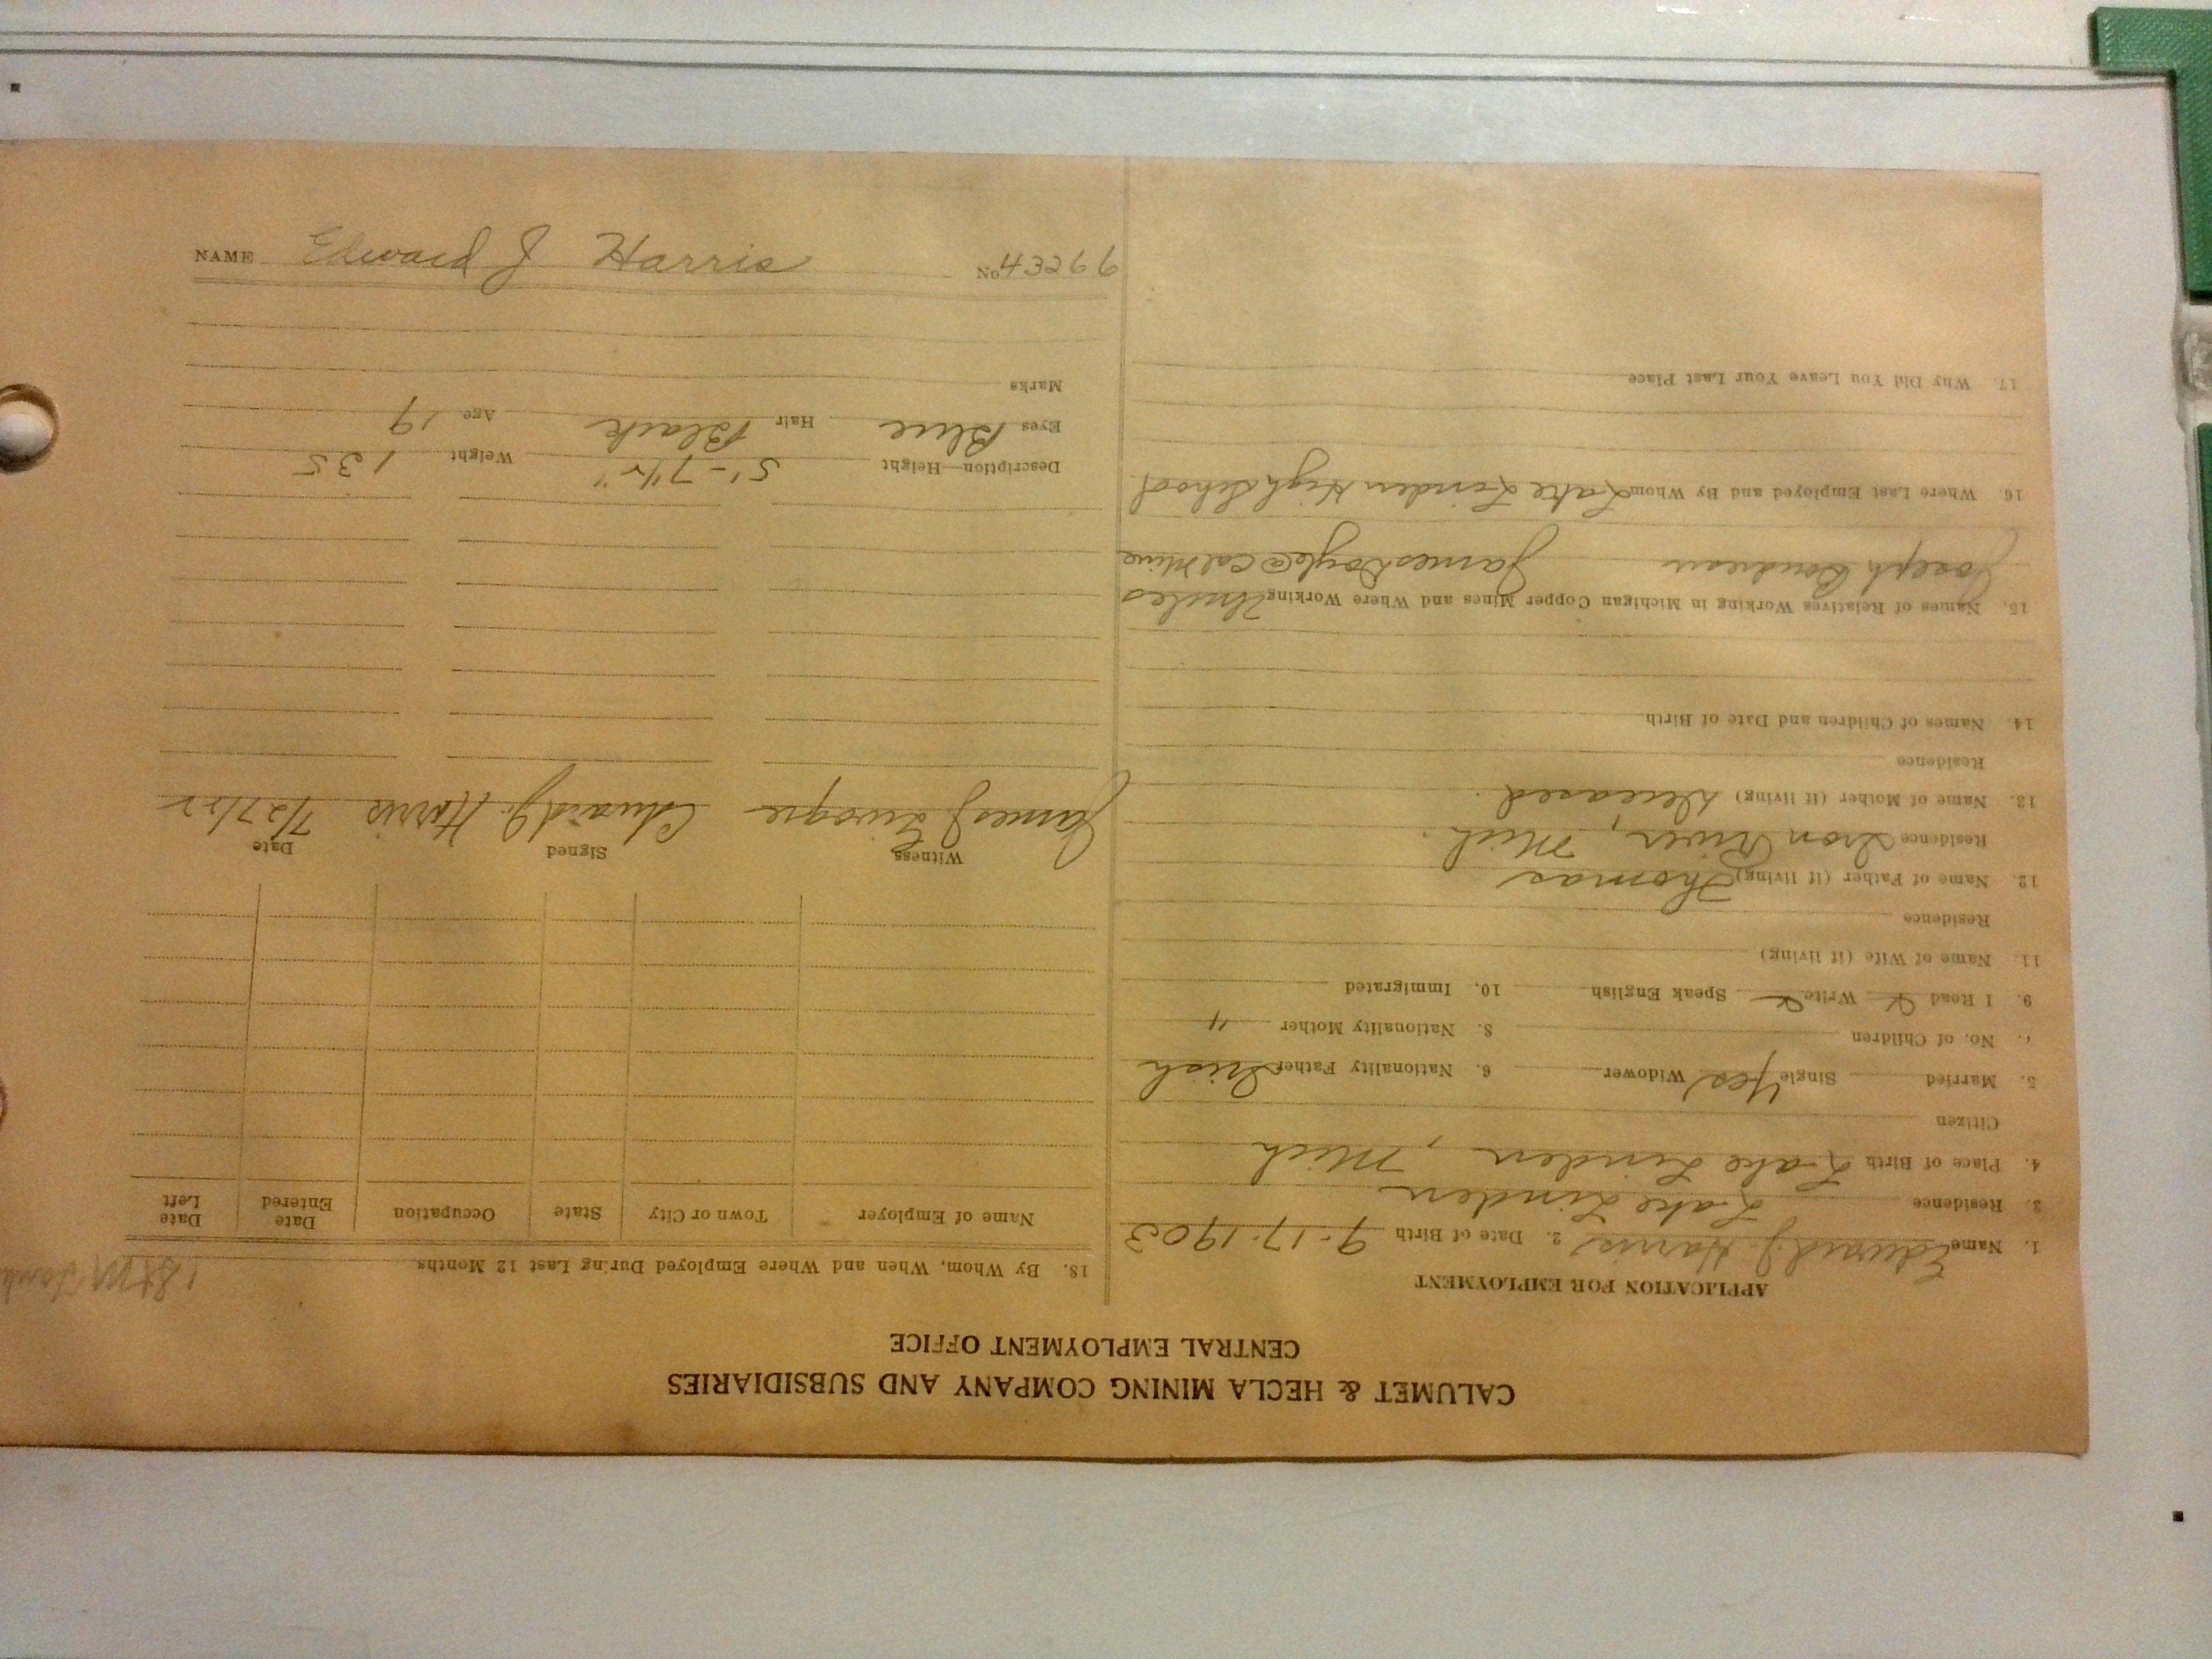 CALUMET & HECLA MINING COMPANY AND SUBSIDIARIES
CENTRAL EMPLOYMENT OFFICE
APPLICATION FOR EMPLOYMENT
1. Name Edward J. Harris 2. Date of Birth 9-17-1903
3. Residence Lake Linden
4. Place of Birth Lake Linden, Mich
Citizen
5. Married Single Yes Widower 6. Nationality Father Irish
7. No. of Children 8. Nationality Mother "
9. I Read Write Speak English 10. Immigrated
11. Name of Wife (if living)
Residence
12. Name of Father (if living) Thomas
Residence Iron River, Mich.
13. Name of Mother (if living) Deceased.
Residence
14. Names of Children and Date of Birth
15. Names of Relatives Working in Michigan Copper Mines and Where Working Uncles
Joseph James Doyle @ Cal Mine
16. Where Last Employed and By Whom Lake Linden High School
17. Why Did You Leave Your Last Place
18. By Whom, When and Where Employed During Last 12 Months
Name of Employer Town or City State Occupation Date Entered Date Left
Witness Signed Date
James J Edward J. Harris 7/27/22
Description—Height 5'-7 1/2" Weight 135
Eyes Blue Hair Black Age 19
Marks
NAME Edward J Harris No 43299